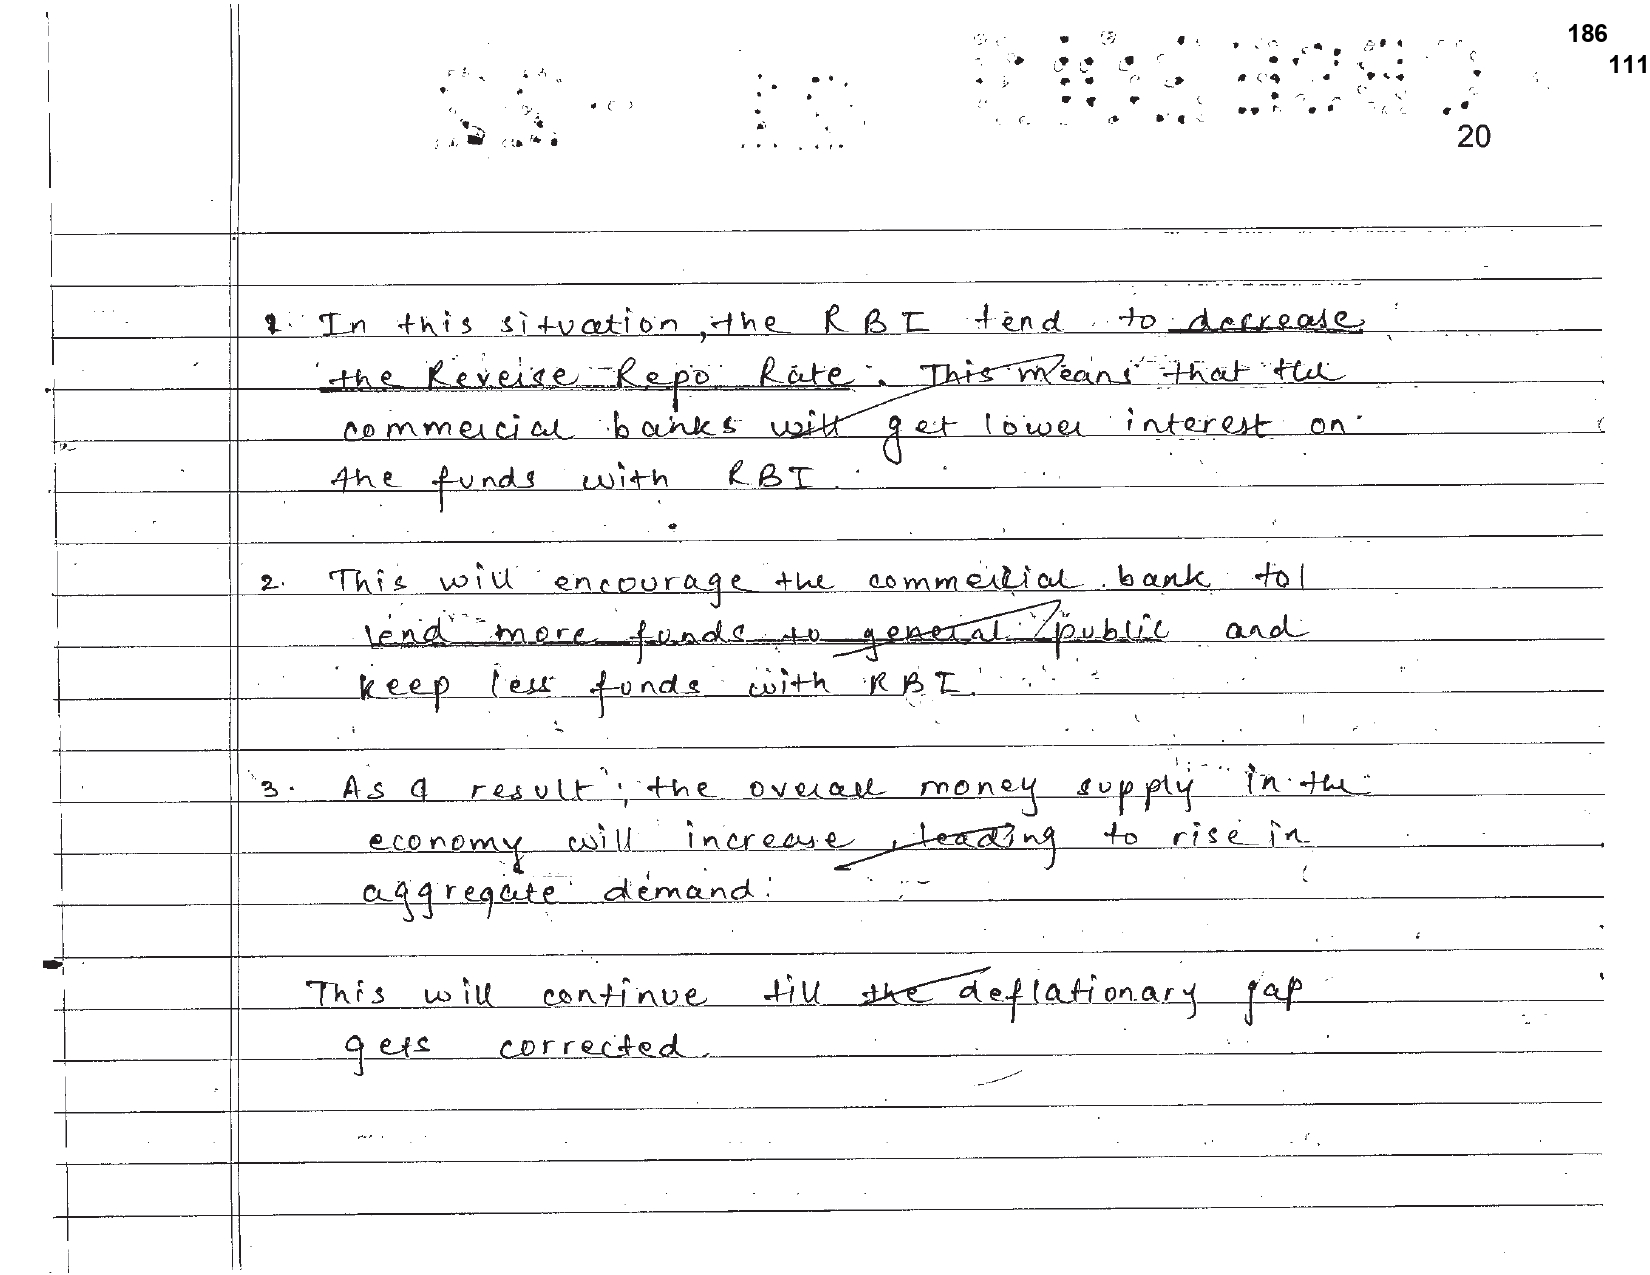 186
111
20
1. In this situation, the RBI tend to decrease
the Reverse Repo Rate. This means that the
commercial banks will get lower interest on
the funds with RBI.
2. This will encourage the commercial bank to
lend more funds to general public and
keep less funds with RBI.
3. As a result, the overall money supply in the
economy will increase, leading to rise in
aggregate demand.
This will continue till the deflationary gap
gets corrected.